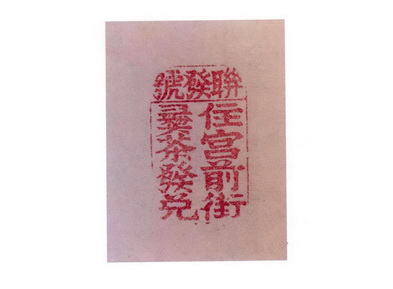 聯發號
住宮前街
茶發兌